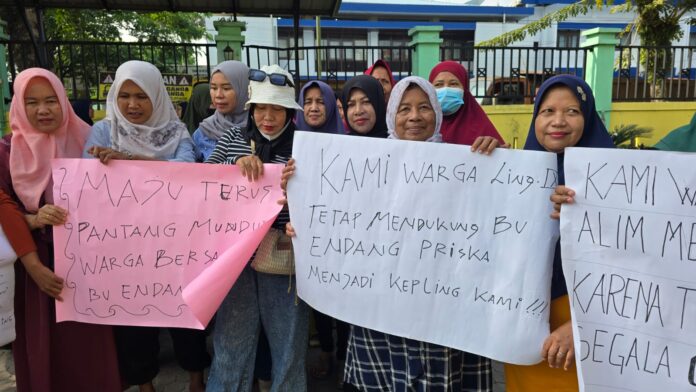 MAJU TERUS
PANTANG MUNDUR
WARGA BERSA
BU ENDAN
KAMI WARGA Ling-I
TETAP MENDUKUNG BU
ENDANG PRISKA
MENJADI KEPLING KAMI !!!
KAMI W
ALIM ME
KARENA T
SEGALA